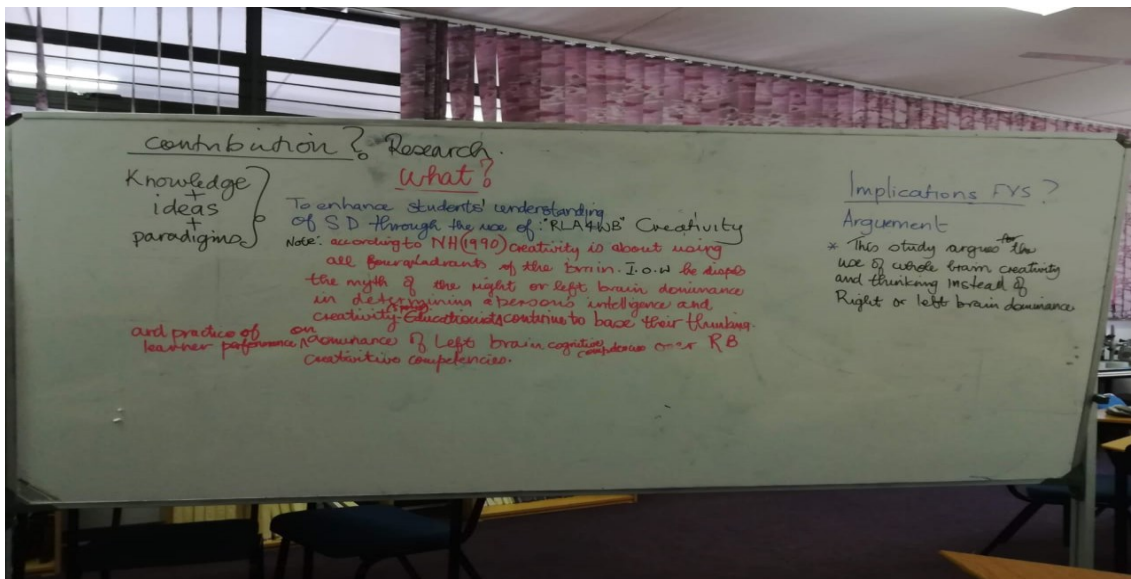 contribution? Research.
Knowledge
+
ideas
+
paradigms
What?
To enhance students' understanding
of SD through the use of: "RLA4WB" Creativity
Note: according to NH (1990) creativity is about using
all four quadrants of the brain. I.O.W he dispels
the myth of the right or left brain dominance
in determining a person's intelligence and
creativity. Educationists continue to base their thinking.
and practice of
learner performance on dominance of Left brain cognitive competencies over RB
creativitive competencies.
Implications FVS?
Arguement
* This study argues for the
use of whole brain creativity
and thinking instead of
Right or left brain dominance